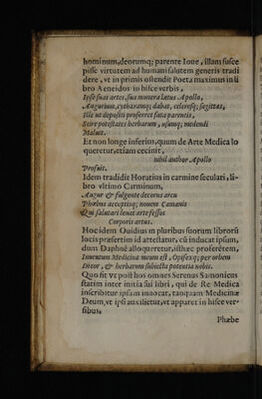 hominum, deorumq; parente Ioue, illam fusce
pisse virtutem ad humani salutem generis tradi
dere, vt in primis ostendit Poeta maximus in li
bro Aeneidos io hisce verbis,
Ipse suas artes, sua munera lætus Apollo,
Augurium, cytharamq; dabat, celeresq; sagittas,
Ille vt depositi proferret fata parentis,
Scire potestates herbarum, vsumq; medendi
Maluit.
Et non longe inferius, quum de Arte Medica lo
queretur, etiam cecinit,
nihil author Apollo
Profuit.
Idem tradidit Horatius in carmine sæculari, li-
bro vltimo Carminum,
Augur & fulgente decorus arcu
Phœbus acceptusq; nouem Camœnis
Qui salutari leuat arte fessos
Corporis artus.
Hoc idem Ouidius in pluribus suorum librorū
locis præsertim id attestatur, cū inducat ipsum,
dum Daphnē alloqueretur, isthæc proferētem,
Inuentum Medicina meum est, Opifexq; per orbem
Dicor, & herbarum subiecta potentia nobis.
Quo fit vt post hos omnes Serenus Samonicus
statim inter initia sui libri, qui de Re Medica
inscribitur ipsum inuocat, tanquam Medicinæ
Deum, vt ipsi auxilietur, vt apparet in hisce ver-
sibus.
Phœbe